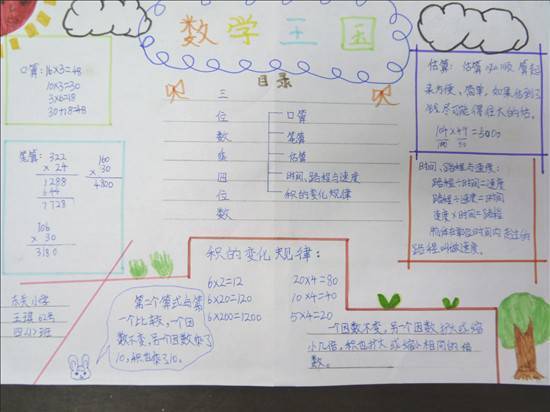 数学王国
口算：16×3=48
10×3=30
3×6=18
30+18=48
目录
三
位
数
乘
四
位
数
口算
笔算
估算
时间、路程与速度
积的变化规律
估算：估算
方便、简单，如果估到了
尽可能 往大的估。
104×49
=5000
100 50
笔算：322
× 24
1288
644
7728
160
× 30
4800
106
× 30
3180
时间、路程与速度：
路程÷时间=速度
路程÷速度=时间
速度×时间=路程
物体在单位时间内走过的
路程叫做速度。
积的变化规律：
6×2=12
6×20=120
6×200=1200
20×4=80
10×4=40
5×4=20
东关小学
王琪 62号
四(2)班
第二个算式与第
一个比较，一个因
数不变，另一个因数乘了
10，积也乘了10。
一个因数不变，另一个因数扩大或缩
小几倍，积也扩大或缩小相同的倍
数。